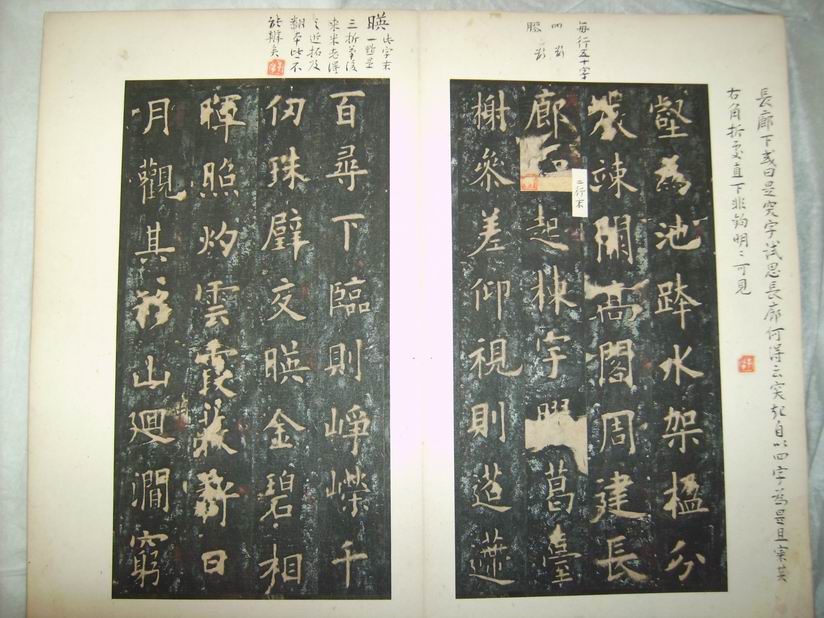 長廊下或曰是突字試思長廊何得云突起自以四字為是且
右角折處直下非鈎明〻可見
每行五十字
壑為池跨水架楹分
巖竦闕高閣周建長
廊四起棟宇膠葛臺
榭參差仰視則迢遰
二行不
暎此字末
一點是
三折筆後
來米老得
之近拓及
翻本皆不
能辨矣
百尋下臨則崢嶸千
仞珠璧交暎金碧相
暉照灼雲霞蔽虧日
月觀其移山廻澗窮